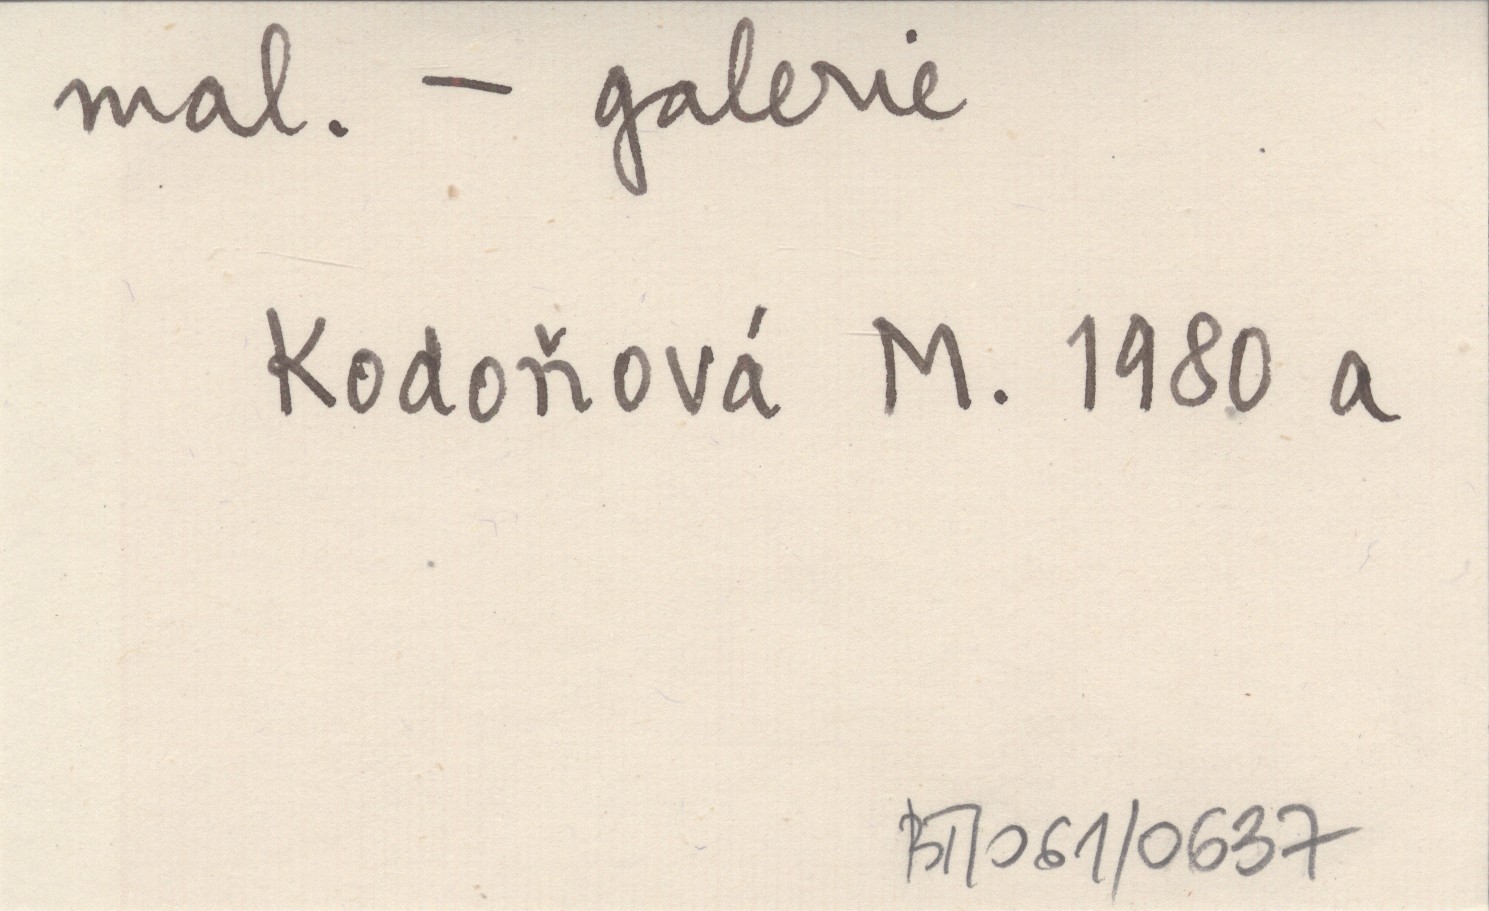 mal. – galerie
Kodoňová M. 1980 a
BT/061/0637